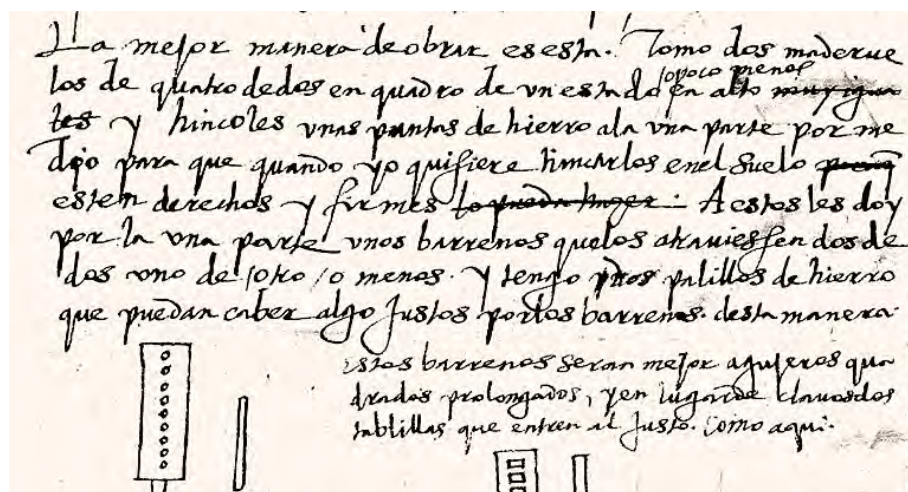 La mejor manera de obrar es esta. Tomo dos maderue
los de quatro dedos en quadro de un estado en alto muy igua
/o poco menos/
les y hincoles unas puntas de hierro a la una parte por me
dio para que quando yo quisiere hincarlos en el suelo
esten derechos y firmes lo pueda hazer: A estos les doy
por la una parte unos barrenos que los atraviessen dos de
dos uno de /otro /o menos. y tengo unos palillos de hierro
que puedan caber algo justos por los barrenos. desta manera.
Estos barrenos seran mejor agujeros qua
drados prolongados, y en lugar de clavos dos
tablillas que entren al justo. Como aqui.